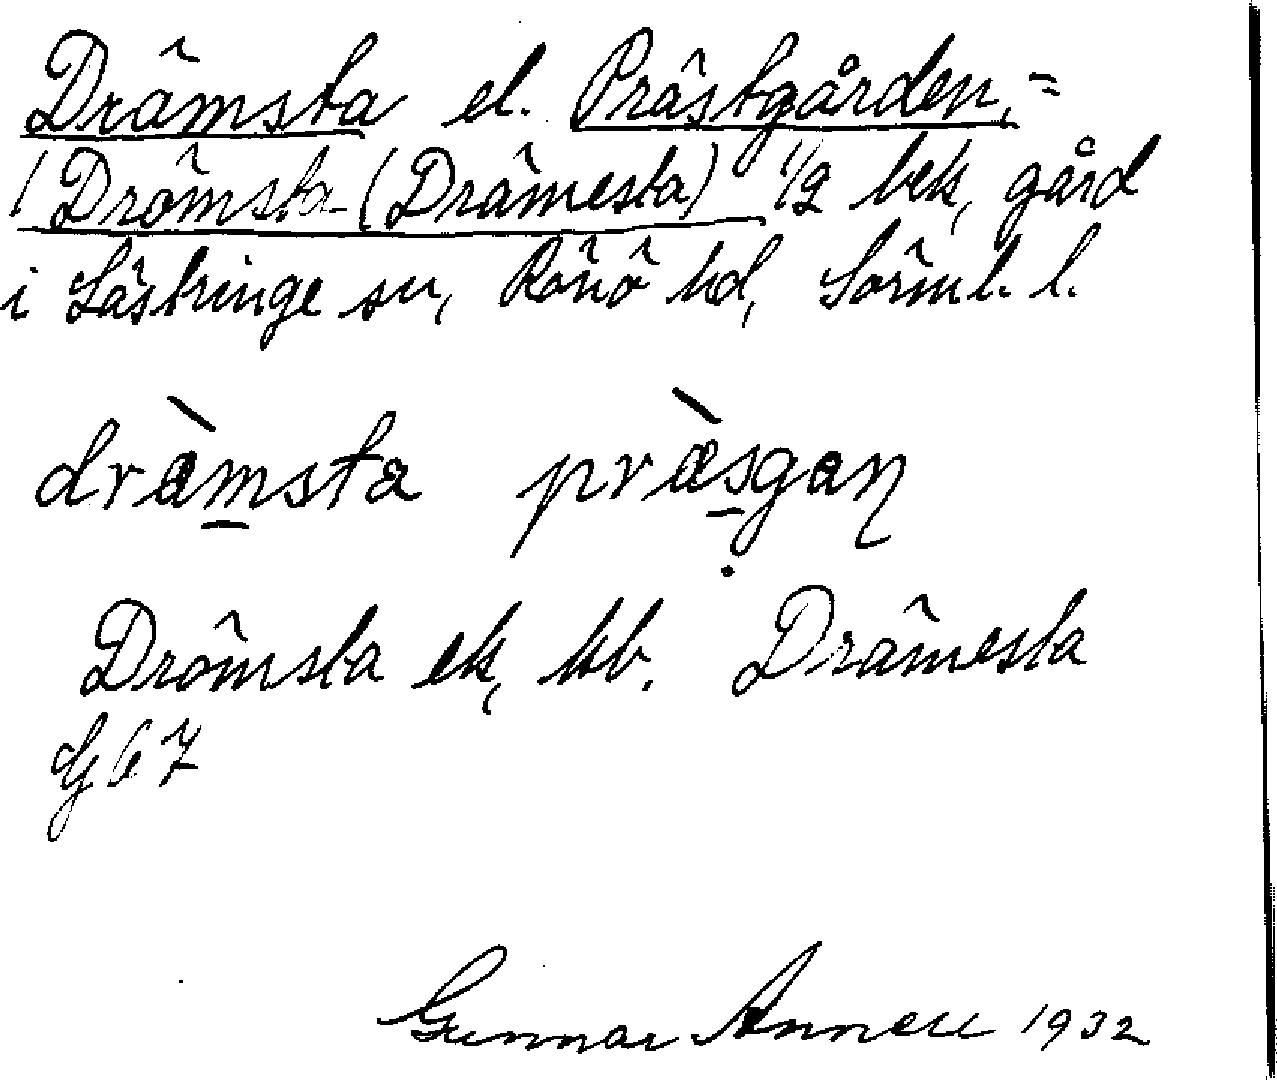 Drämsta el. Prästgården, =
/ Drömsta (Drämesta) 1/2 bck, gård
i Lästringe sn, Rönö hd, Sörml. l.
dràmsta pràsgaɳ
Drömsta ek, kb. Drämesta
G 67
Gunnar Annell 1932